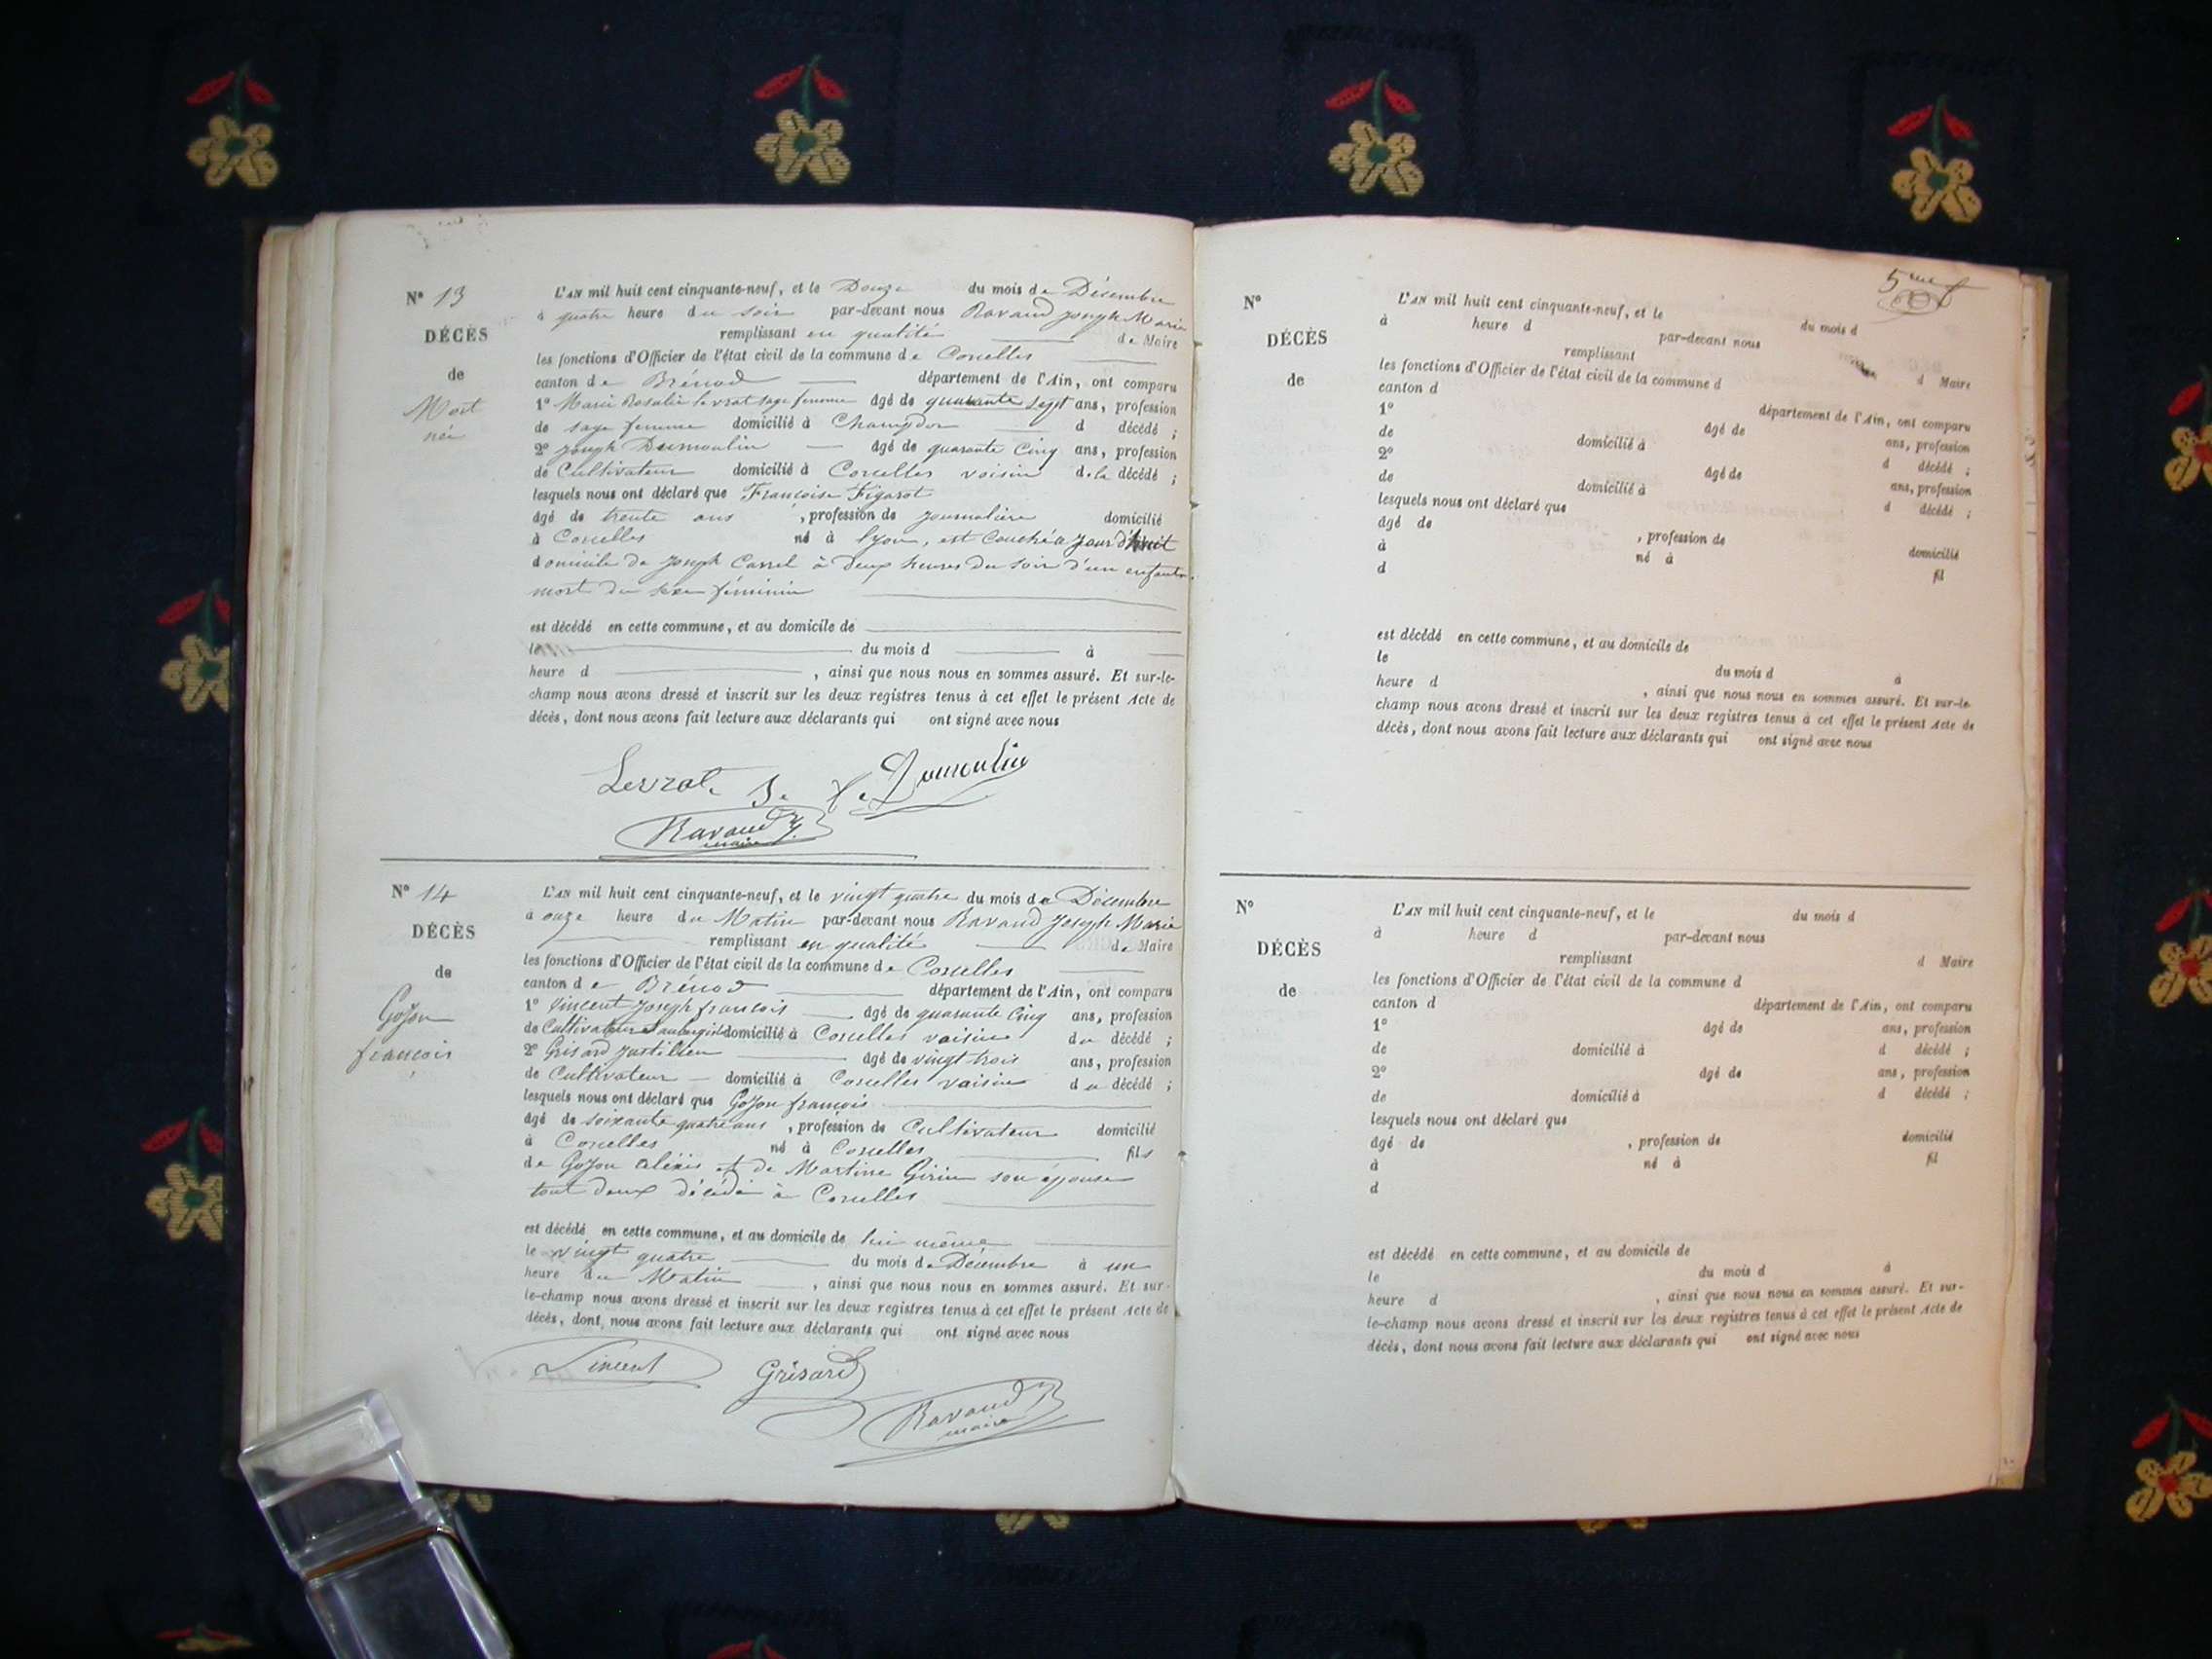 N° 13
DÉCÈS
de
Mort
née
L'AN mil huit cent cinquante-neuf, et le Douze du mois de Décembre
à quatre heure du soir par-devant nous Ravaud Joseph Marie
remplissant en qualité de Maire
les fonctions d'Officier de l'état civil de la commune de Corcelles
canton de Brénod département de l'Ain, ont comparu
1° Marie Rosalie Levrat sage femme âgé de quarante sept ans, profession
de sage femme domicilié à Champdor d décédé ;
2° Joseph Dumoulin âgé de quarante Cinq ans, profession
de Cultivateur domicilié à Corcelles voisin de la décédé ;
lesquels nous ont déclaré que Francoise Figarot
âgé de trente ans , profession de journalière domicilié
à Corcelles né à lyon, est Couchéé
domicile de Joseph Carrel à deux heures du soir d'un enfant
mort du sexe féminin
est décédé en cette commune, et au domicile de
le du mois d à
heure d , ainsi que nous nous en sommes assuré. Et sur-le-
champ nous avons dressé et inscrit sur les deux registres tenus à cet effet le présent Acte de
décès, dont nous avons fait lecture aux déclarants qui ont signé avec nous
Levrat Dumoulin
Ravaud
maire
N° 14
DÉCÈS
de
Goyon
francois
L'AN mil huit cent cinquante-neuf, et le vingt quatre du mois de Décembre
à onze heure du Matin par-devant nous Ravaud Joseph Marie
remplissant en qualité de Maire
les fonctions d'Officier de l'état civil de la commune de Corcelles
canton de Brénod département de l'Ain, ont comparu
1° Vincent Joseph francois âgé de quarante Cinq ans, profession
de Cultivateur domicilié à Corcelles voisin du décédé ;
2° Grisard Justilien âgé de vingt trois ans, profession
de Cultivateur domicilié à Corcelles voisin du décédé ;
lesquels nous ont déclaré que Goyon francois
âgé de soixante quatre ans , profession de Cultivateur domicilié
à Corcelles né à Corcelles fils
de Goyon Aléxis et de Martine Girin son épouse
tout deux décédé à Corcelles
est décédé en cette commune, et au domicile de lui même
le vingt quatre du mois de Décembre à un
heure du Matin , ainsi que nous nous en sommes assuré. Et sur-
le-champ nous avons dressé et inscrit sur les deux registres tenus à cet effet le présent Acte de
décès, dont nous avons fait lecture aux déclarants qui ont signé avec nous
Vincent Grisard
Ravaud
maire
N°
DÉCÈS
de
L'AN mil huit cent cinquante-neuf, et le du mois d
à heure d par-devant nous
remplissant d Maire
les fonctions d'Officier de l'état civil de la commune d
canton d département de l'Ain, ont comparu
1° âgé de ans, profession
de domicilié à d décédé ;
2° âgé de ans, profession
de domicilié à d décédé ;
lesquels nous ont déclaré que
âgé de , profession de domicilié
à né à fil
d
est décédé en cette commune, et au domicile de
le du mois d à
heure d , ainsi que nous nous en sommes assuré. Et sur-le-
champ nous avons dressé et inscrit sur les deux registres tenus à cet effet le présent Acte de
décès, dont nous avons fait lecture aux déclarants qui ont signé avec nous
N°
DÉCÈS
de
L'AN mil huit cent cinquante-neuf, et le du mois d
à heure d par-devant nous
remplissant d Maire
les fonctions d'Officier de l'état civil de la commune d
canton d département de l'Ain, ont comparu
1° âgé de ans, profession
de domicilié à d décédé ;
2° âgé de ans, profession
de domicilié à d décédé ;
lesquels nous ont déclaré que
âgé de , profession de domicilié
à né à fil
d
est décédé en cette commune, et au domicile de
le du mois d à
heure d , ainsi que nous nous en sommes assuré. Et sur-
le-champ nous avons dressé et inscrit sur les deux registres tenus à cet effet le présent Acte de
décès, dont nous avons fait lecture aux déclarants qui ont signé avec nous